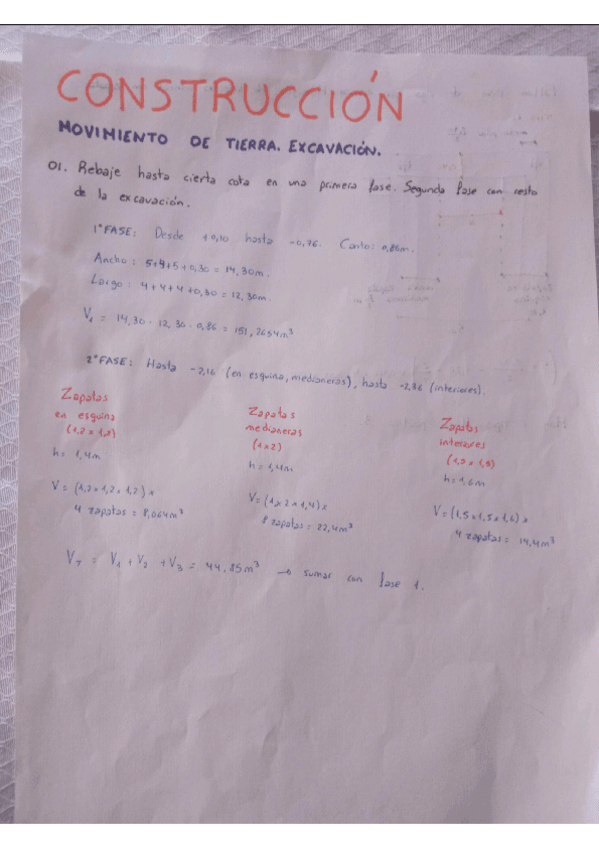 CONSTRUCCIÓN
MOVIMIENTO DE TIERRA. EXCAVACIÓN.
01. Rebaje hasta cierta cota en una primera fase. Segunda fase con resto
de la excavación.
1ª FASE: Desde +0,10 hasta -0,76. Canto: 0,86m.
Ancho: 5+4+5+0,30 = 14,30m.
Largo: 4+4+4+0,30 = 12,30m.
V₁ = 14,30 · 12,30 · 0,86 = 151,2654m³
2ª FASE: Hasta -2,16 (en esquina, medianeras), hasta -2,36 (interiores).
Zapatas
en esquina
(1,2 x 1,2)
h= 1,4m
V= (1,2 x 1,2 x 1,2) x
4 zapatas = 8,064m³
Zapatas
medianeras
(1x2)
h= 1,4m
V= (1 x 2 x 1,4) x
8 zapatas = 22,4m³
Zapatas
interiores
(1,5 x 1,5)
h= 1,6m
V= (1,5 x 1,5 x 1,6) x
4 zapatas = 14,4m³
V_T = V₁ + V₂ + V₃ = 44,85m³ → sumar con fase 1.